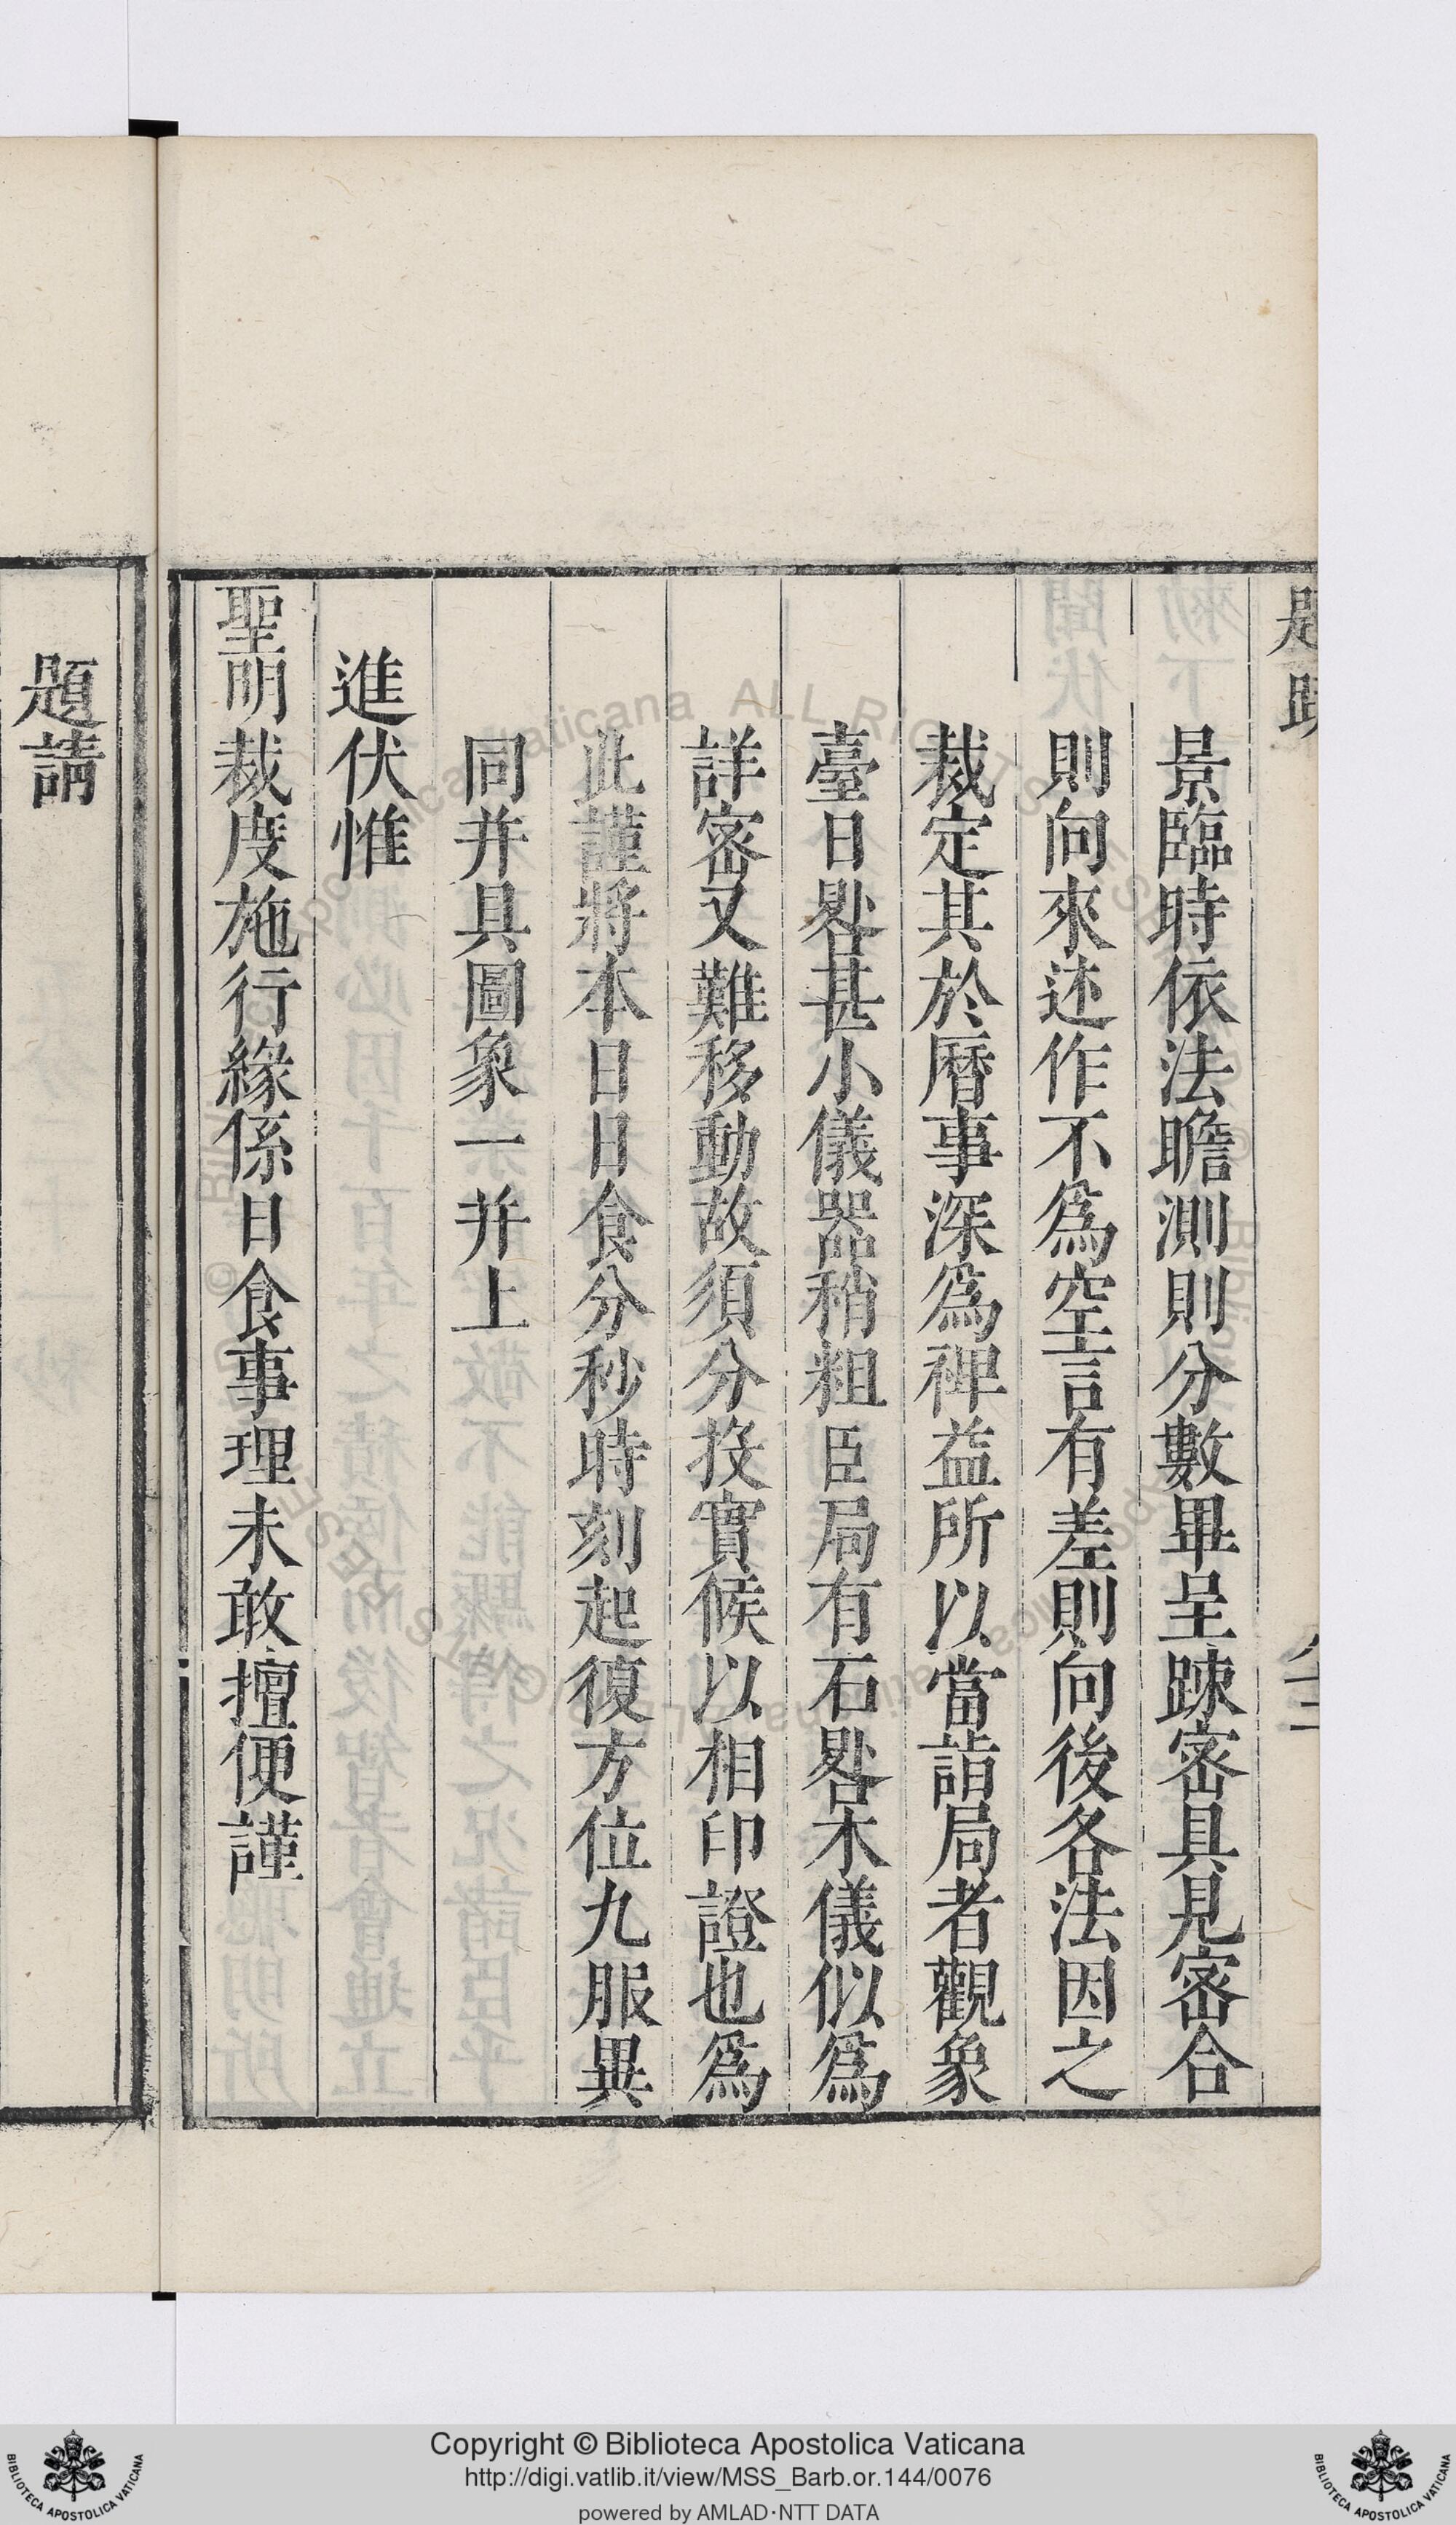 景臨時依法瞻測則分數畢呈踈宻具見宻合
則向來述作不爲空言有差則向後各法因之
裁定其於曆事深爲裨益所以當詣局者觀象
臺日晷甚小儀器稍粗臣局有石晷木儀似爲
詳宻又難移動故須分投實候以相印證也爲
此謹將本日日食分秒時刻起復方位九服異
同并具圖象一并上
進伏惟
聖明裁度施行緣係日食事理未敢擅便謹
題請
Copyright © Biblioteca Apostolica Vaticana
http://digi.vatlib.it/view/MSS_Barb.or.144/0076
powered by AMLAD·NTT DATA
BIBLIOTECA APOSTOLICA VATICANA
BIBLIOTECA APOSTOLICA VATICANA